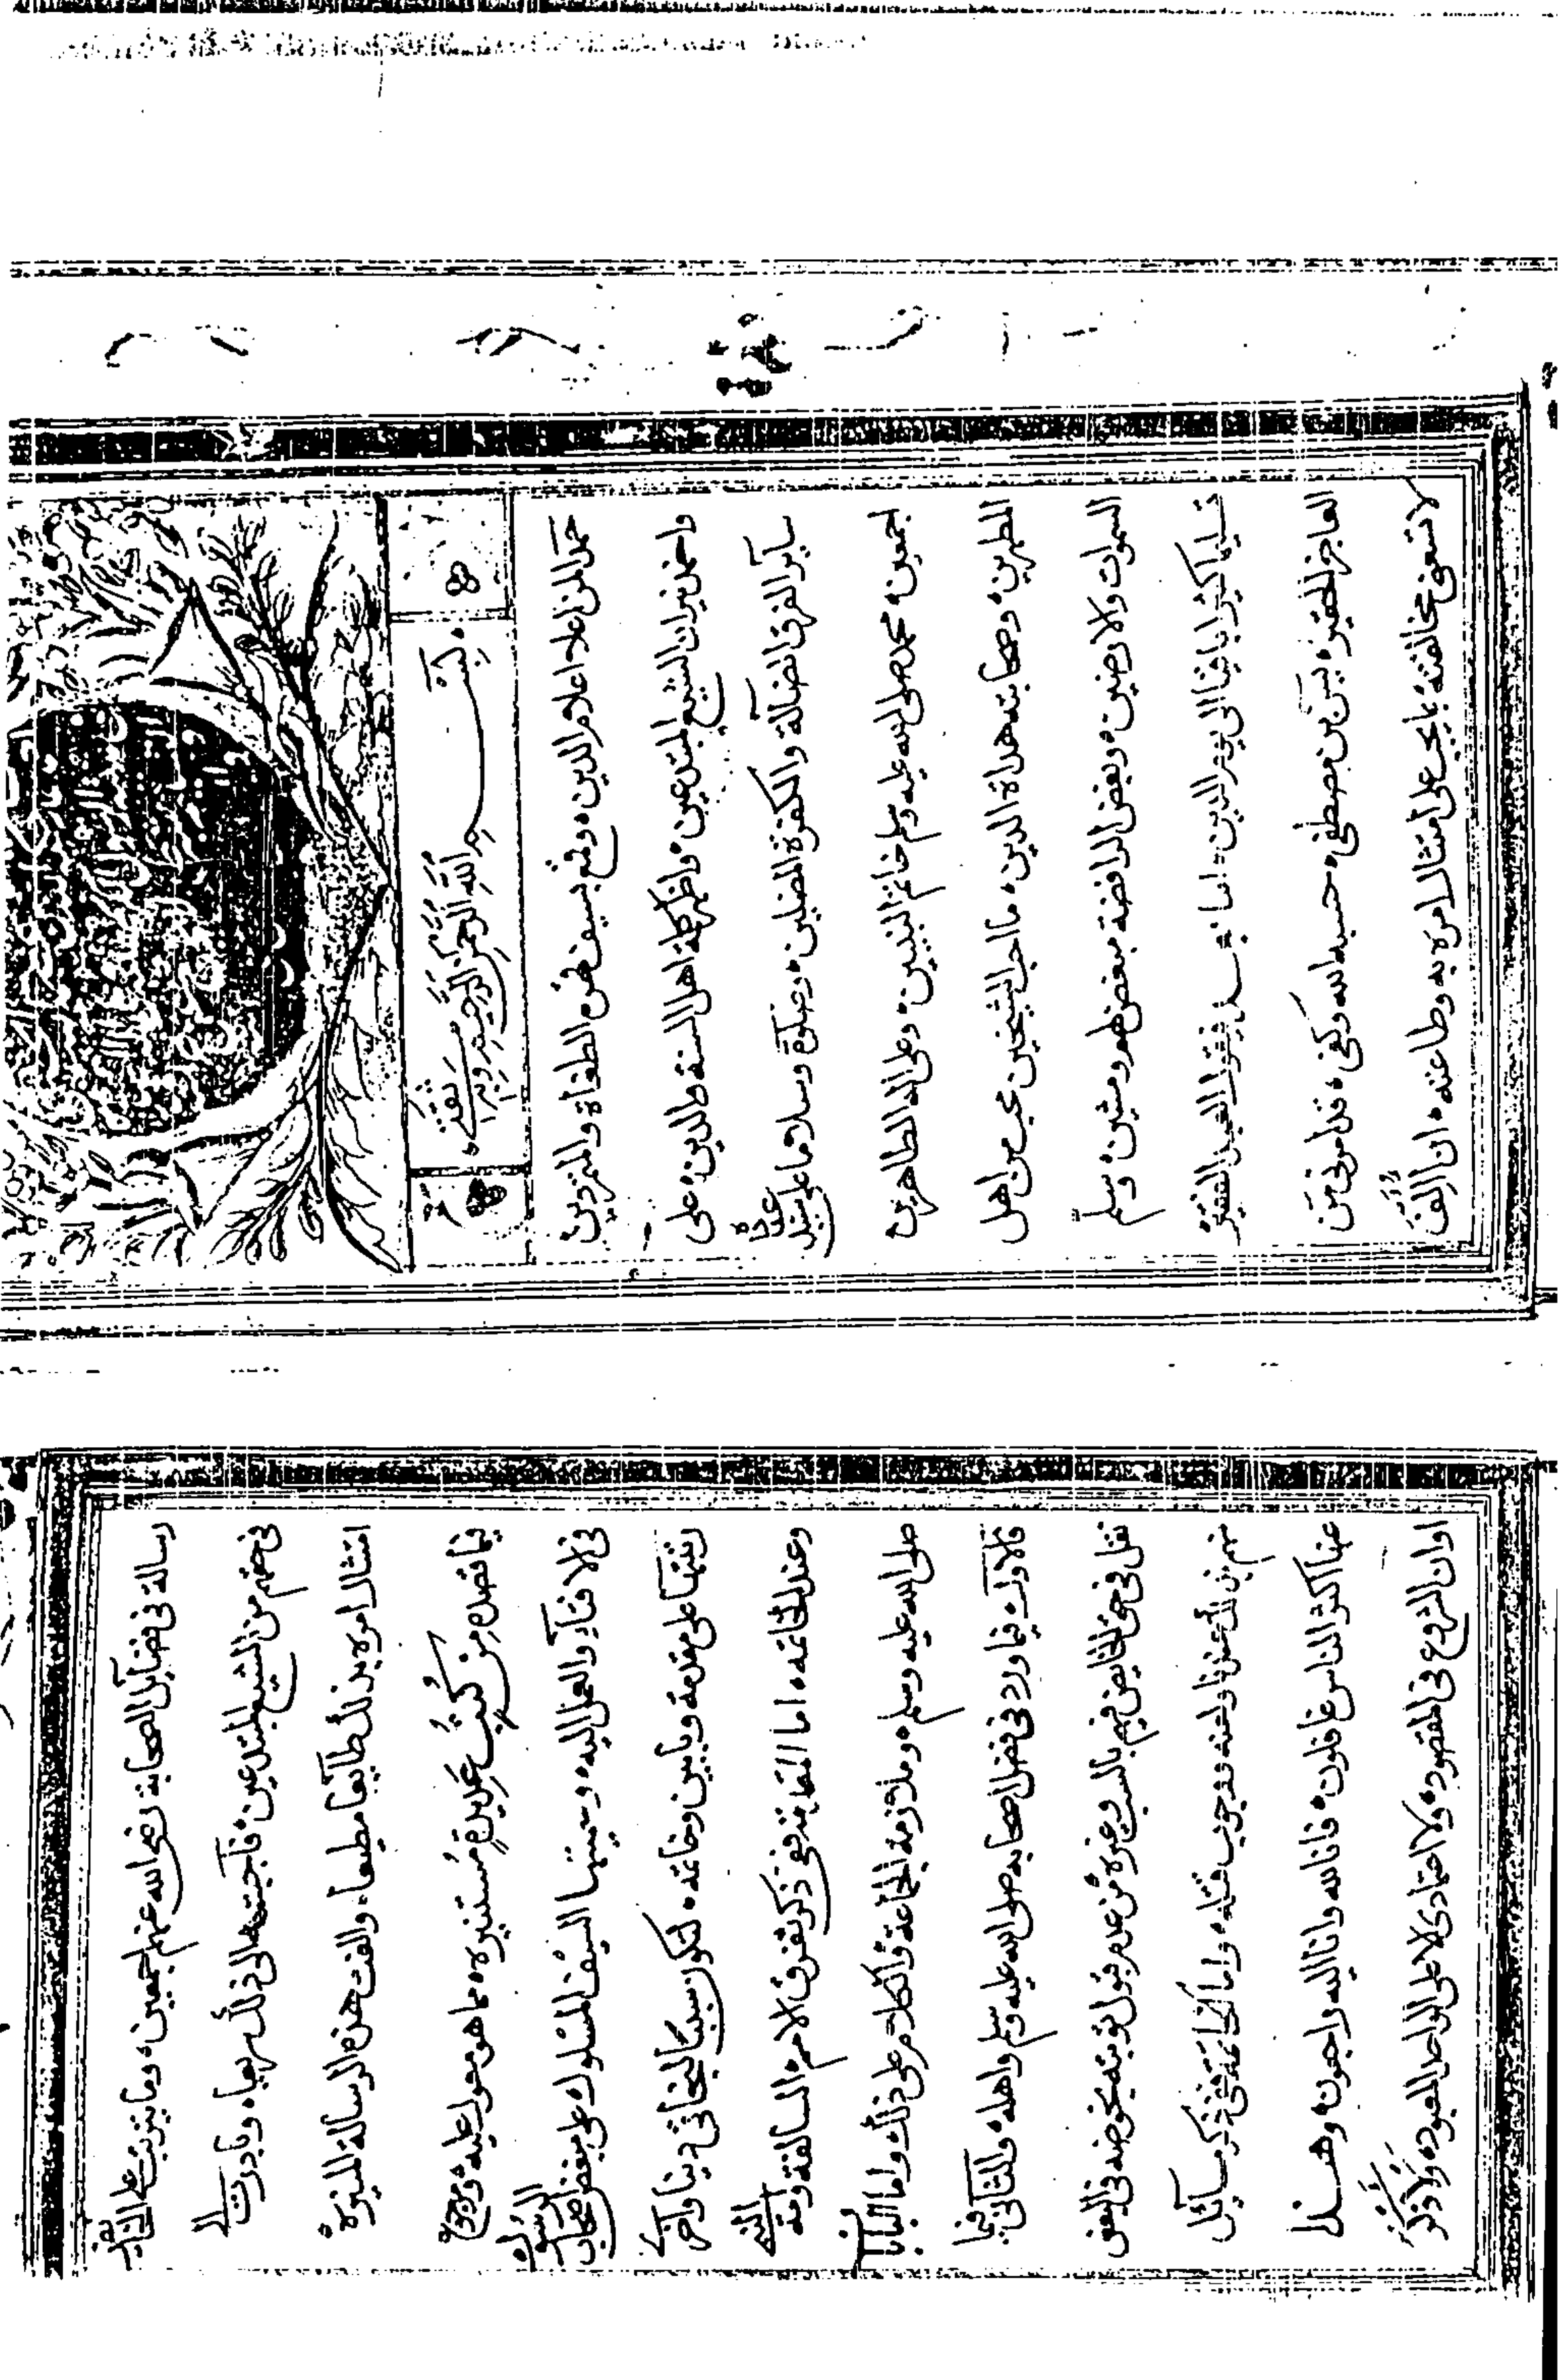 بسم الله الرحمن الرحيم وبه ثقتي
حمدا لمن اعلا اعلام الدين وقمع بسيف قهره الطغاة والمتمردين
واخمد نيران الشيع المبتدعين واظهر كلمة اهل السنة والدين على
ساير الفرق الضالة والكفرة المضلين وصلوة وسلاما على سيد
اجمعين محمد صلى الله عليه وسلم خاتم النبيين وعلى اله الطاهرين
المطهرين وصحابته هداة الدين ما احب الشيخين محب من اهل
السموات والارضين وبغض الرافضة مبغض لهم ومشين وسلم
تسليما كثيرا باقيا الى يوم الدين اما بعد فيقول العبد الفقير
العاجز الحقير يسن بن مصطفى حسبه الله وكفى قد امرني من
لا تسعني مخالفته بل يجب علي امتثال امره به وطاعته ان اؤلف
رسالة في فضايل الصحابة رضي الله عنهم اجمعين وما يترتب على
في حقهم من الشيع المبتدعين فاجبته الى ذلك سريعا وبادرت الى
امتثال امره بذلك طايعا مطيعا والفت هذه الرسالة المنيره
فيما قصده من كتب عديدة مستنيره مما هو معول عليه ومرجوع
في الافتاء والعمل اليه وسميتها السيف المسلول على مبغض اصحاب الرسول
رتبتها على مقدمة وبابين وخاتمه لتكون سببا لنجاتي دينا واخرى
وعند الخاتمه اما المقدمة ففي ذكر تفرق الامم السالفة وامة النبي
صلى الله عليه وسلم وملازمة الجماعة والكلام على ذلك واما البابان
فالاول فيما ورد في فضل اصحابه صلى الله عليه وسلم واهله والثاني فيما
نقل في حق الخايض فيهم بالسب وغيره من عدم قبول توبته بخوضه في البعض
منهم بل كفره ولعنه ووجوب قتله واما الخاتمة ففي ذكر مسائل
عنها اكثر الناس غافلون فانا لله وانا اليه راجعون وهذا
اوان الشروع في المقصود ولا اعتمادي الا على الواحد المعبود ولا ذكر